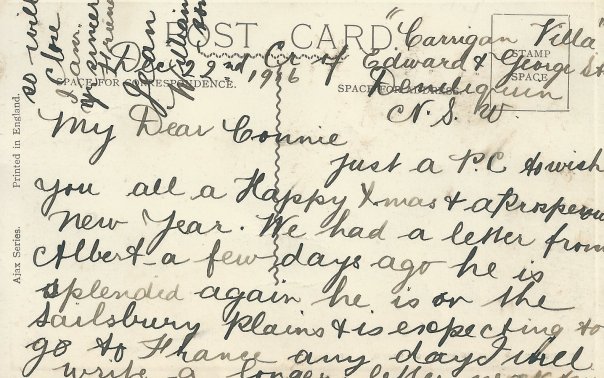 POST CARD
"Carrigan Villa"
STAMP
SPACE
Dec 22nd 1916
Cr of Edward & George St
SPACE FOR CORRESPONDENCE.
SPACE FOR
Deniliquin
N. S. W.
My Dear Connie
Just a P.C to wish
you all a Happy Xmas & a Prosperou
New Year. We had a letter from
Albert a few days ago he is
splended again he is on the
Sailsbury Plains & is expecting to
go to France any day I will
write a longer letter
so will
Close
I am
yr sincere
friend
Jean
Ajax Series. Printed in England.